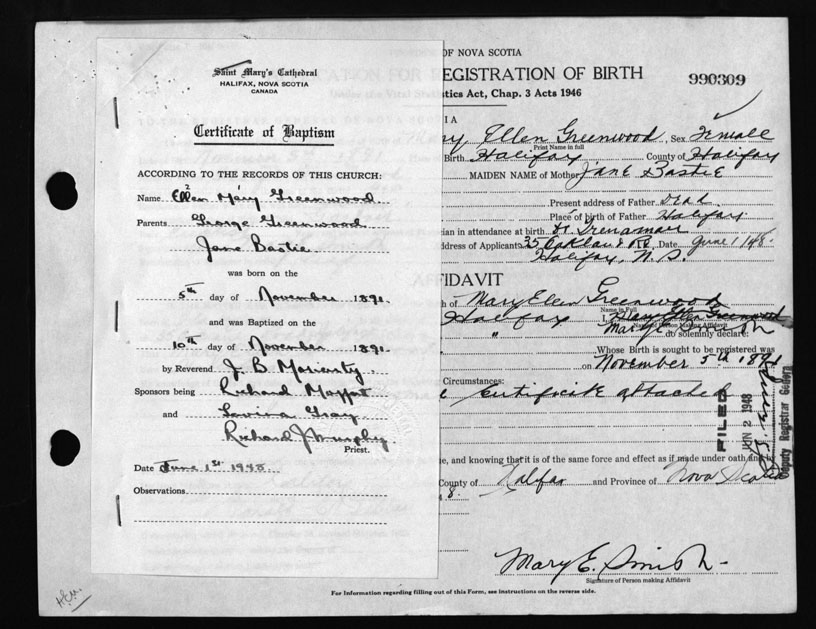 Saint Mary's Cathedral
HALIFAX, NOVA SCOTIA
CANADA
Certificate of Baptism
ACCORDING TO THE RECORDS OF THIS CHURCH:
Name Ellen Mary Greenwood
2 1
Parents George Greenwood
Jane Bastie
was born on the
5th day of November 1891
and was Baptized on the
10th day of November 1891
by Reverend J. B. Moriarty
Sponsors being Richard Moffat
and Lavinia Gray
Richard J Murphy
Priest.
Date June 1st 1948
Observations
OF NOVA SCOTIA
REGISTRATION OF BIRTH
990309
tics Act, Chap. 3 Acts 1946
IA
ry Ellen Greenwood, Sex Female
Print Name in full
Birth Halifax County of Halifax
MAIDEN NAME of Mother Jane Bastie
Present address of Father Dead
Place of birth of Father Halifax
ian in attendance at birth Dr
ddress of Applicant 35 Oakland Rd, Date June 1/48.
Halifax, N.S.
AFFIDAVIT
h of Mary Ellen Greenwood
Name in Full
Halifax I, Mary Ellen Greenwood
Mary E Smith
Name of Person Making Affidavit
" do solemnly declare:
Whose Birth is sought to be registered was
on November 5th 1891
Circumstances:
certificate attached
FILED
JUN 2 1948
Deputy Registrar General
e, and knowing that it is of the same force and effect as if made under oath and
County of Halifax and Province of Nova Scotia
8.
Mary E. Smith
Signature of Person making Affidavit
For Information regarding filling out of this Form, see instructions on the reverse side.